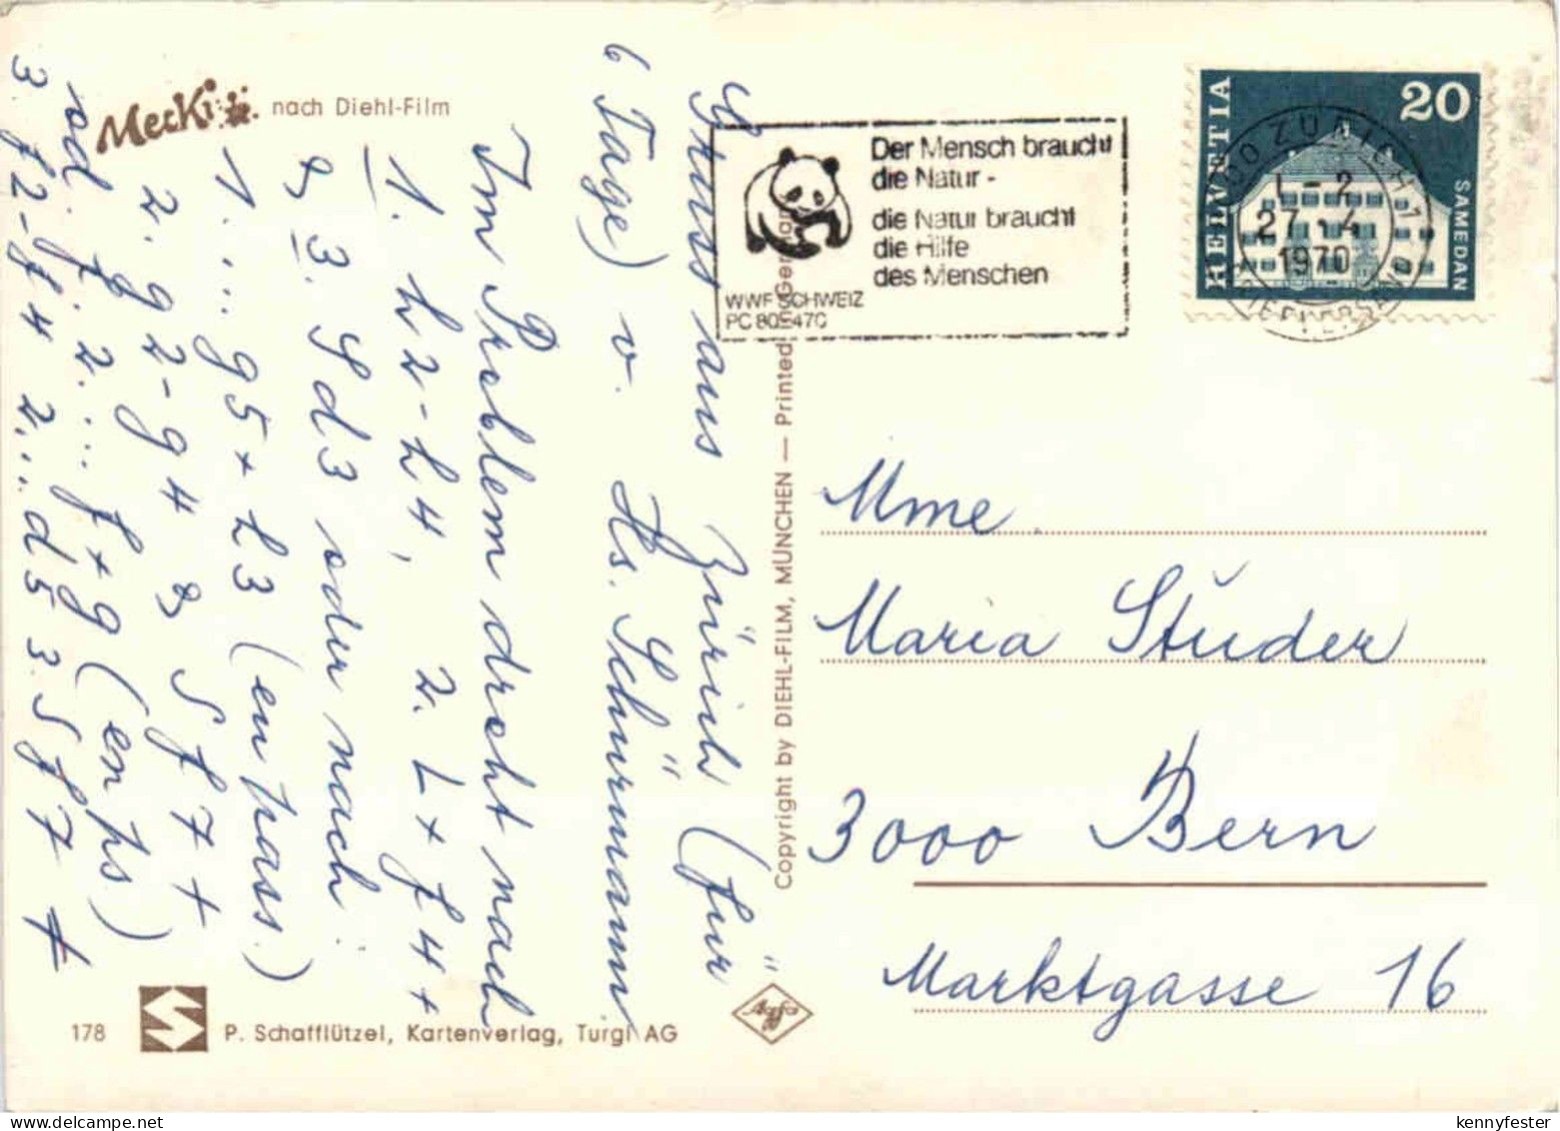 Mecki nach Diehl-Film
Gruss aus Zürich (für
6 Tage) v. Hs. Schürmann
Im Problem droht nach
1. h2-h4, 2. L x f4 +
& 3. S d3 oder nach
1. ... g5 x h3 (en pass.)
2. g2-g4 & S f7 +
od. f. 2. ... f x g (en ps)
3. f2-f4 2. .. d5 3. S f7 ‡
Copyright by DIEHL-FILM, MÜNCHEN — Printed in Germany
Der Mensch braucht
die Natur -
die Natur braucht
die Hilfe
des Menschen
WWF SCHWEIZ
PC 80-470
HELVETIA
20
SAMEDAN
ZÜRICH 1
1-2
27.-4.
1970
BRIEFVERSAND
Mme
Maria Studer
3000 Bern
Marktgasse 16
178 P. Schafflützel, Kartenverlag, Turgi AG
Agfa
kennyfester